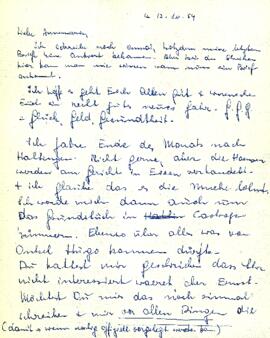 12.10.54
Liebe Annemarie,
Ich schreibe noch einmal, nachdem meine letzten
Brief keine Antwort bekamen. Aber bei den Streiken
hier kann man nie wissen wann ein Brief
ankommt.
Ich hoffe es geht Euch Allen gut & wünsche
Euch ein recht gutes neues Jahr. g.g.g
= Glück, Geld, Gesundheit.
Ich fahre Ende des Monats nach
Nicht gerne, aber die
werden am Gericht in Essen verhandelt
& ich glaube das es die Mühe lohnt.
Ich werde mich dann auch um
Das Grundstück in Castrop
kümmern. Ebenso über alles was von
Onkel Hugo kommen dürfte.
Du hattest mir geschrieben das Ihr
nicht interessiert waeret, aber Ernst.
Möchtest Du mir das noch einmal
schreiben & mir vor allen Dingen die
(damit & wenn nötig offiziell vorgelegt